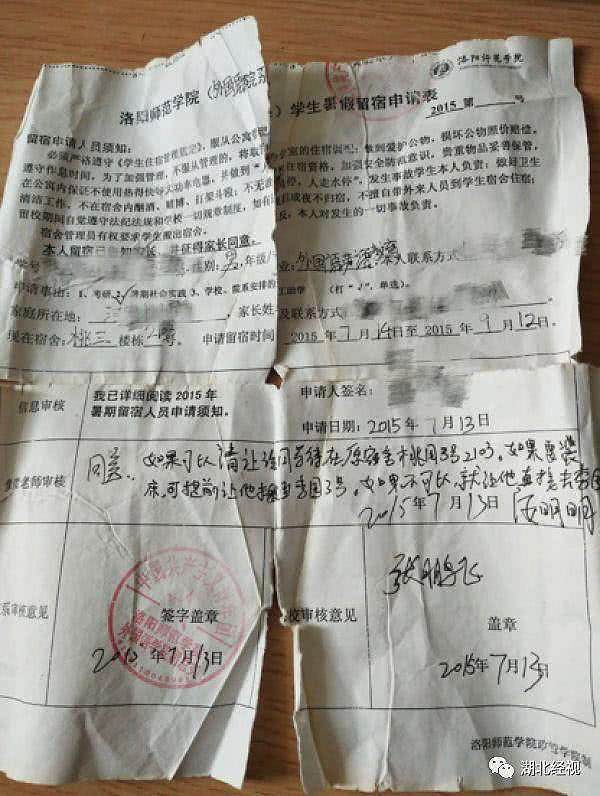 洛阳师范学院
洛阳师范学院（外国语学院系）学生暑假留宿申请表
2015 第 号
留宿申请人员须知：
必须严格遵守《学生住宿管理规定》，服从公寓 做到爱护公物，损坏公物照价赔偿，
遵守作息时间。为了加强管理，不服从管理的，将取 住宿资格。加强安全防范意识，贵重物品妥善保管，
在公寓内保证不使用热得快等大功率电器，并做到“人 停，人走水停”，发生事故学生本人负责；做好卫生
清洁工作，不在宿舍内酗酒、赌博、打架斗殴；不无 或夜不归宿，不擅自带外来人员到学生宿舍住宿；
留校期间自觉遵守法纪法规和学校一切规章制度，如有 反，本人对发生的一切事故负责。
宿舍管理员有权要求学生搬出宿舍。
本人留宿已告知家长，并征得家长同意。
学号 性别：男，年级/ 业： 本人联系方式
申请事由：1、考研 2、暑期社会实践 3、学校、院系安排的 工助学 （打“√”，单选）。
家庭所在地： 家长姓 及联系方式
现在宿舍：桃三 楼栋 号。 申请留宿时间 2015年7月14日至2015年9月12日。
信息审核
我已详细阅读 2015 年
暑期留宿人员申请须知。
申请人签名：
申请日期：2015年7月13日
老师审核
同意，如果可以请让该同学待在原宿舍桃园3号2103，如果要
床，可提前让他搬至李园3号。如果不可以，就让他直接去李园
2015年7月13日 明明
审核意见
签字盖章
2015年7月13日
校审核意见
张鹏飞
盖章
2015年7月13日
洛阳师范学院
湖北经视